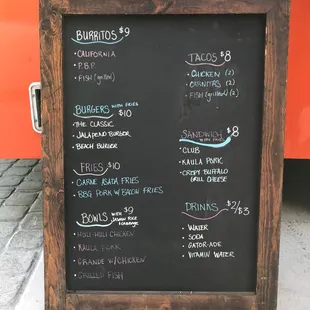 BURRITOS $9
• CALIFORNIA
• P.B.P.
• FISH (grilled)
BURGERS WITH FRIES
$10
• THE CLASSIC
• JALAPENO BURGER
• BEACH BURGER
FRIES $10
• CARNE ASADA FRIES
• BBQ PORK W/ BACON FRIES
BOWLS $9
WITH
• HULI-HULI CHICKEN
• KAULA PORK
• GRANDE W/ CHICKEN
• GRILLED FISH
TACOS $8
• CHICKEN (2)
• CARNITAS (2)
• FISH (grilled) (2)
SANDWICH $8
WITH FRIES
• CLUB
• KAULA PORK
• CRISPY BUFFALO
GRILL CHEESE
DRINKS $2/$3
• WATER
• SODA
• GATOR-ADE
• VITAMIN WATER